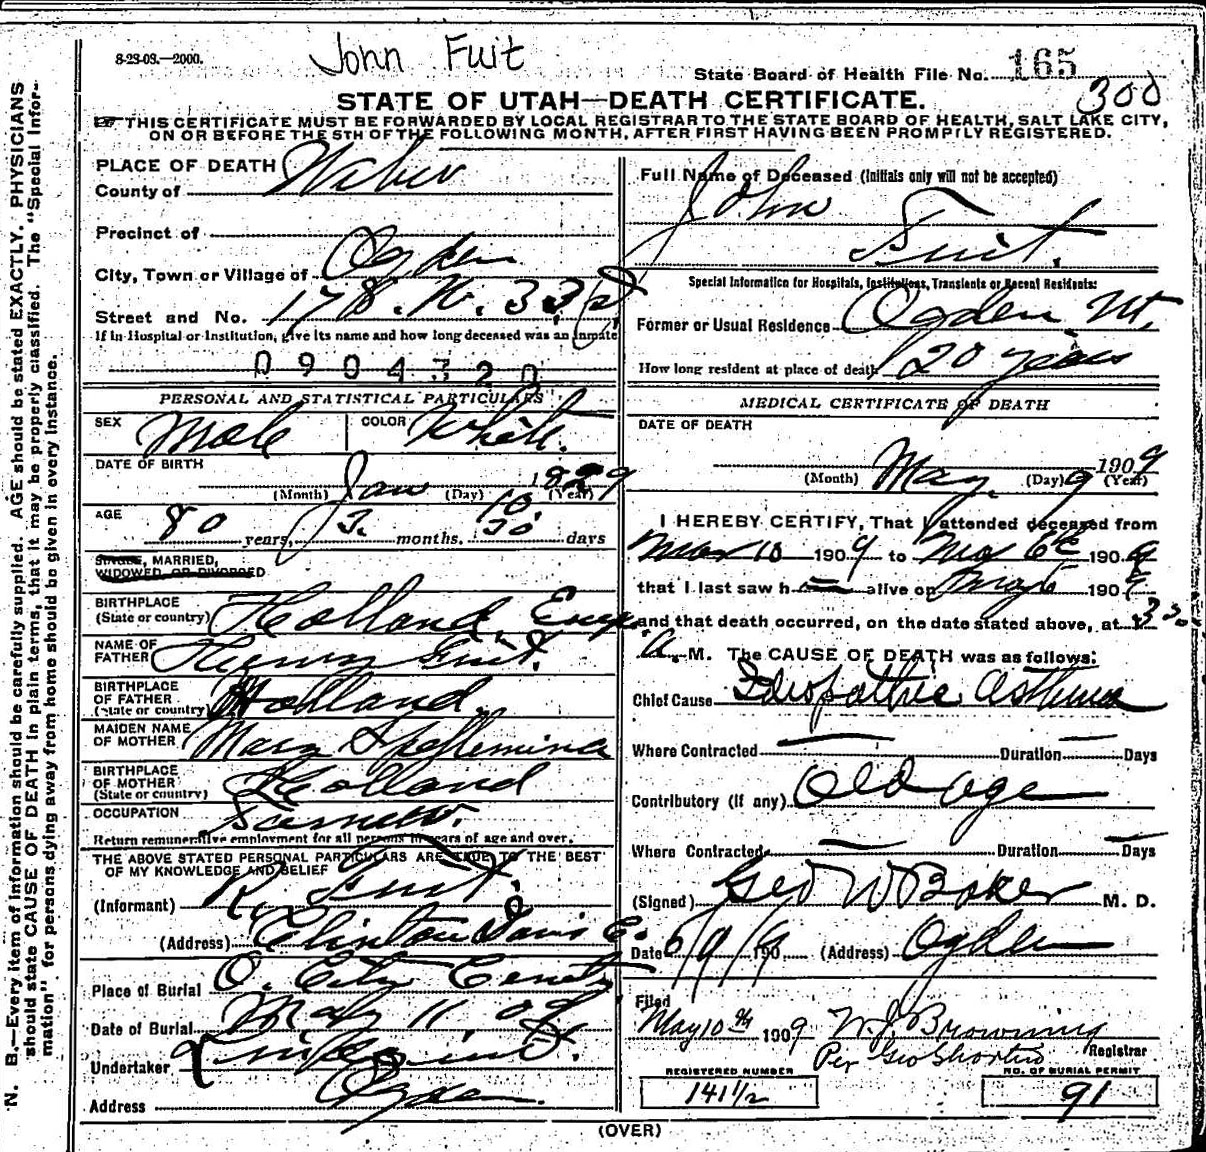 8-23-03.—2000.
John Fuit
State Board of Health File No. 165
300
STATE OF UTAH—DEATH CERTIFICATE.
THIS CERTIFICATE MUST BE FORWARDED BY LOCAL REGISTRAR TO THE STATE BOARD OF HEALTH, SALT LAKE CITY,
ON OR BEFORE THE 5TH OF THE FOLLOWING MONTH, AFTER FIRST HAVING BEEN PROMPTLY REGISTERED.
PLACE OF DEATH
County of Weber
Precinct of
City, Town or Village of Ogden
Street and No. 178. W. 33
If in Hospital or Institution, give its name and how long deceased was an inmate
0904320
PERSONAL AND STATISTICAL PARTICULARS
SEX Male COLOR White.
DATE OF BIRTH
(Month) Jan (Day) 10 (Year) 1829
AGE
80 years, 3. months, 30 days
SINGLE, MARRIED,
WIDOWED OR DIVORCED
BIRTHPLACE
(State or country) Holland,
NAME OF
FATHER Henry Fuit.
BIRTHPLACE
OF FATHER
(State or country) Holland
MAIDEN NAME
OF MOTHER Mary
BIRTHPLACE
OF MOTHER
(State or country) Holland
OCCUPATION
Farmer.
Return remunerative employment for all persons in years of age and over.
THE ABOVE STATED PERSONAL PARTICULARS ARE TRUE TO THE BEST
OF MY KNOWLEDGE AND BELIEF
(Informant) R. Fuit.
(Address) Clinton Davis C.
Place of Burial O. City Cemety
Date of Burial May 11. 09
Undertaker
Address Ogden.
Full Name of Deceased (Initials only will not be accepted)
John
Fuit.
Special Information for Hospitals, Institutions, Transients or Recent Residents:
Former or Usual Residence Ogden Ut.
How long resident at place of death 20 years
MEDICAL CERTIFICATE OF DEATH
DATE OF DEATH
(Month) May (Day) 9 1909 (Year)
I HEREBY CERTIFY, That I attended deceased from
Mar 10 1909 to May 6th 1909
that I last saw h— alive on May 6 1909
and that death occurred, on the date stated above, at 3
A. M. The CAUSE OF DEATH was as follows:
Chief Cause Ideopathic Asthma
Where Contracted — Duration — Days
Contributory (if any) Old age
Where Contracted — Duration — Days
(Signed) Geo W Baker M. D.
Date 5/9/ 1909 (Address) Ogden
Filed
May 10th 1909 W. J. Browning
Per Geo Shorten Registrar
REGISTERED NUMBER
141 1/2
NO. OF BURIAL PERMIT
91
(OVER)
N. B.—Every item of information should be carefully supplied. AGE should be stated EXACTLY. PHYSICIANS
should state CAUSE OF DEATH in plain terms, that it may be properly classified. The "Special Infor-
mation" for persons dying away from home should be given in every instance.